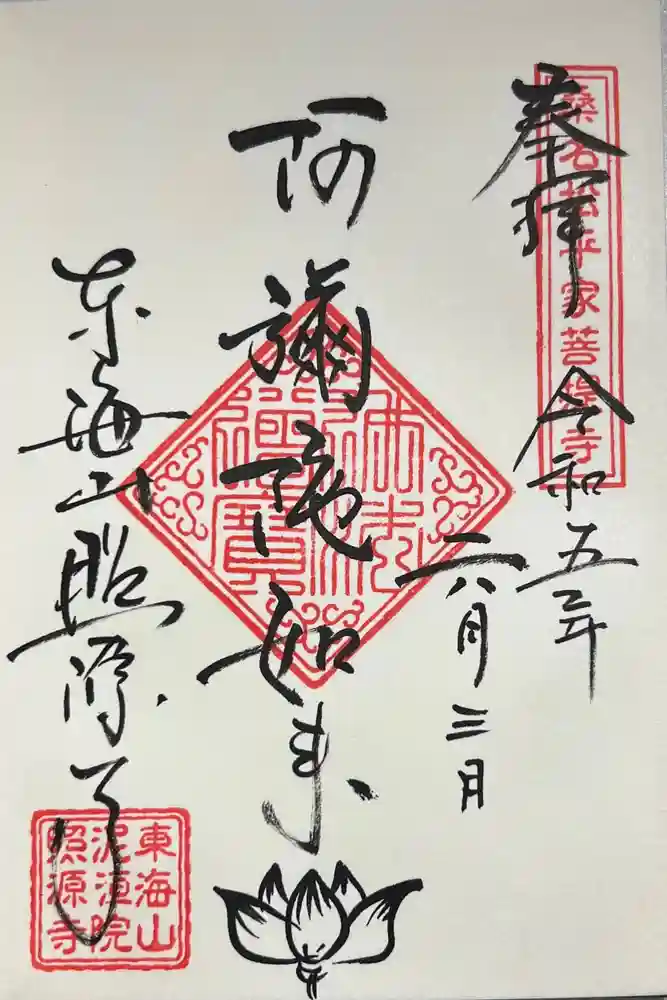 奉拝
桑名松平家菩提寺
令和五年
六月三日
阿彌陀如来
佛法
僧寶
東海山照源寺
東海山
泥洹院
照源寺